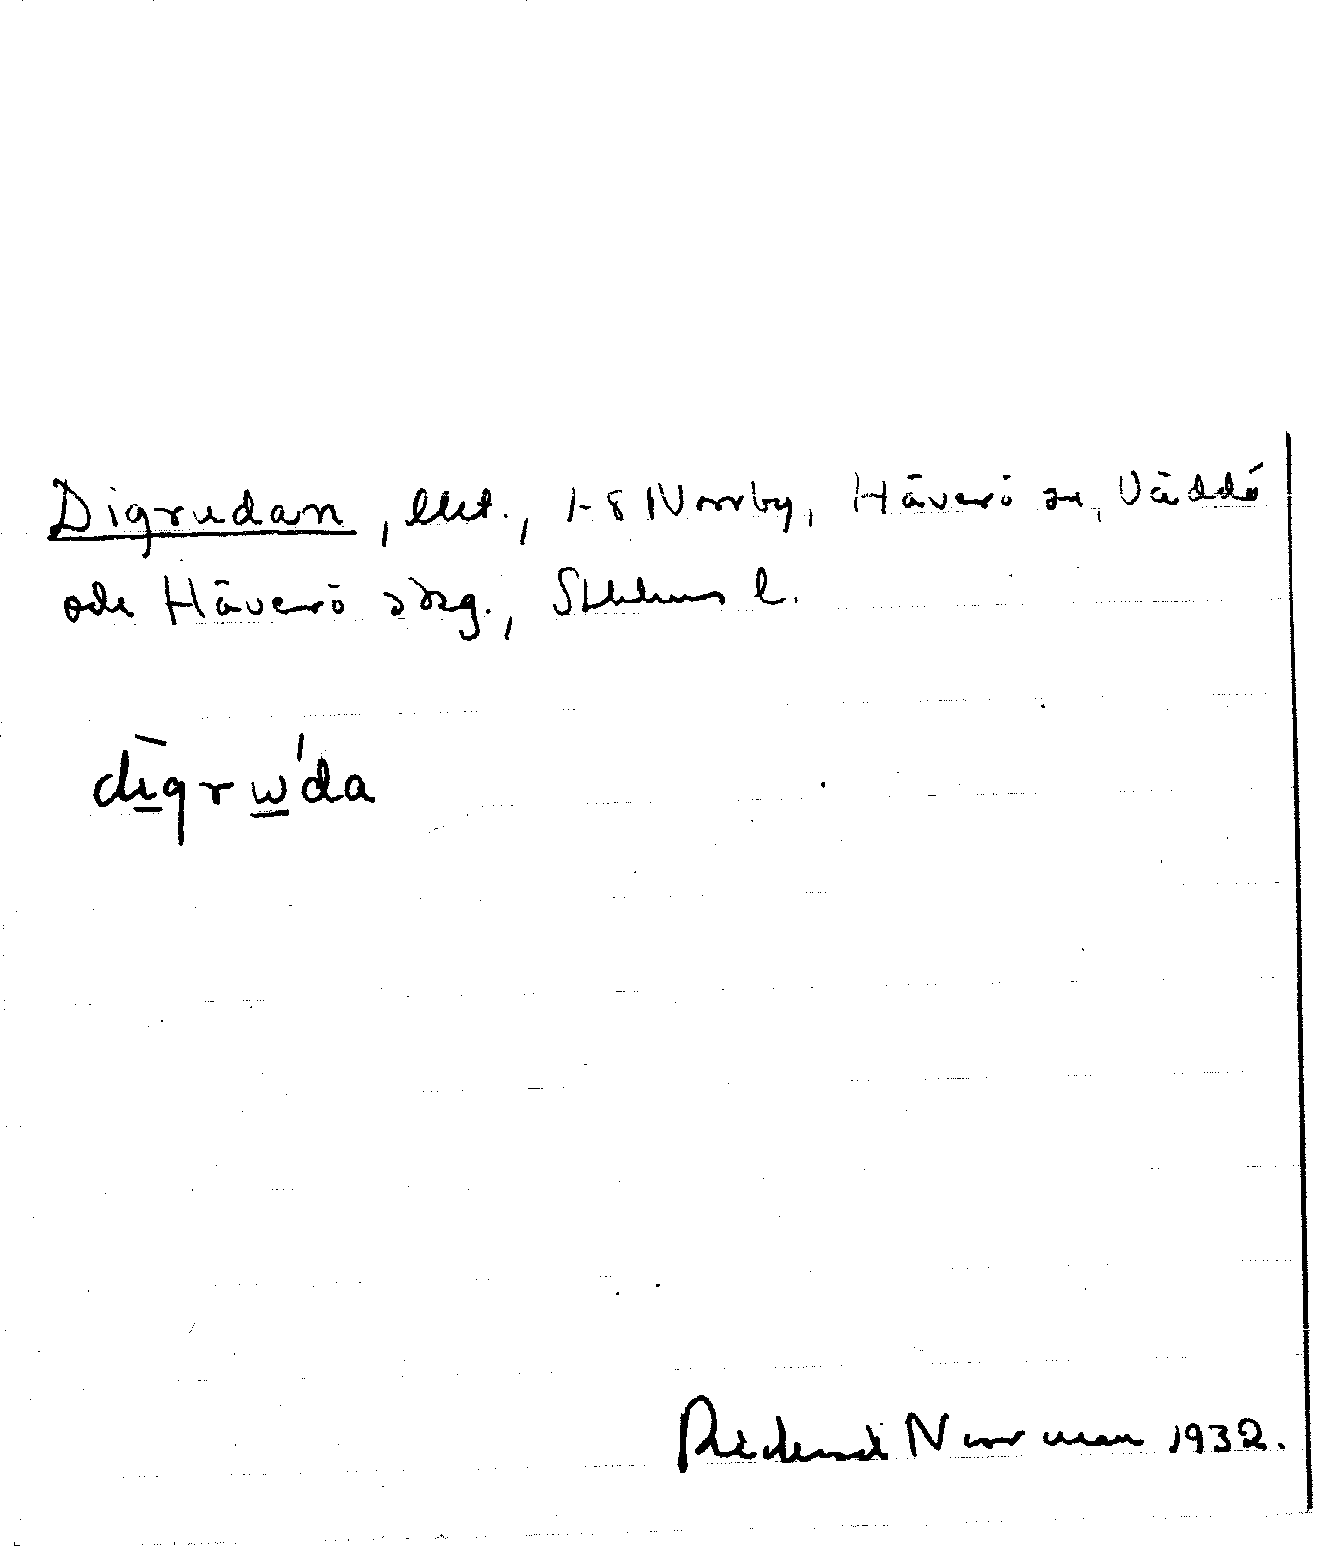 Digrudan, lht., 1-8 Norrby, Häverö sn, Väddö
och Häverö skg., Sthlms l.
dı̱grw̱'da
Rickard Norrman 1932.